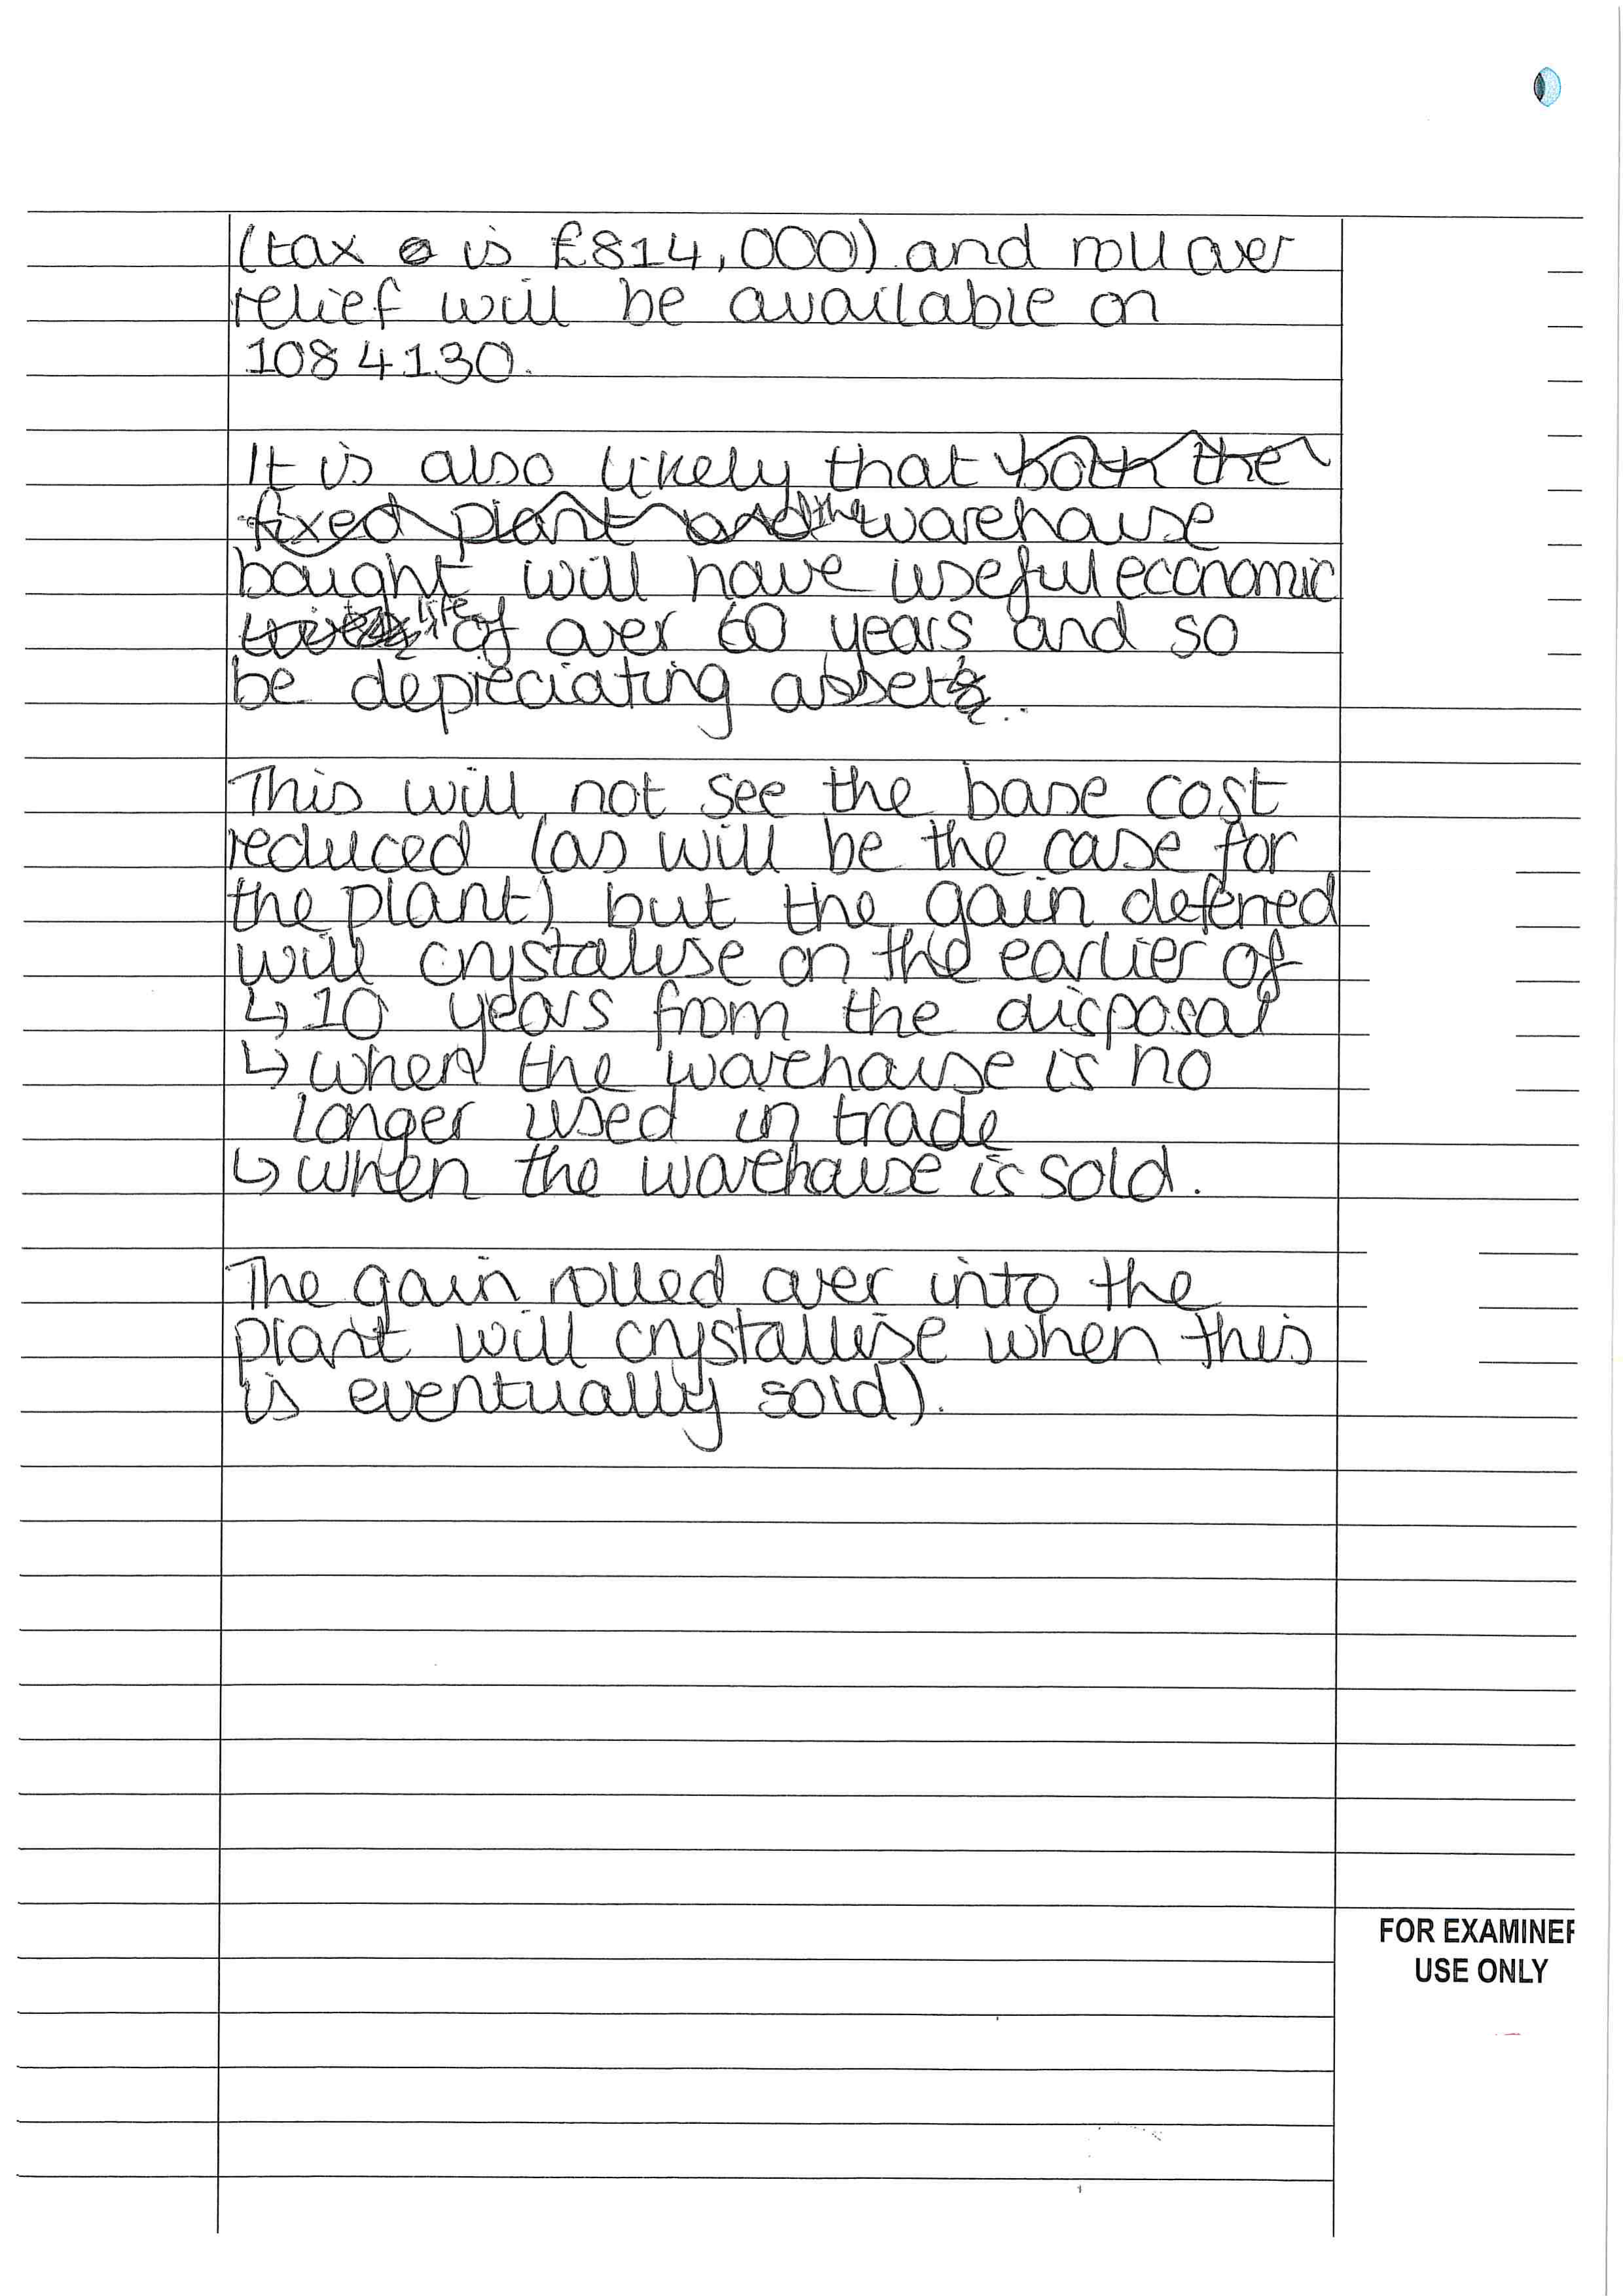 (tax is £814,000) and roll over
relief will be available on
1084130.
It is also likely that both the
fixed plant and the warehouse
bought will have useful economic
life of over 60 years and so
be depreciating asset.
This will not see the base cost
reduced (as will be the case for
the plant) but the gain deferred
will crystalise on the earlier of
↳ 10 years from the disposal
↳ when the warehouse is no
longer used in trade
↳ when the warehouse is sold.
The gain rolled over into the
plant will crystallise when this
is eventually sold).
FOR EXAMINER
USE ONLY